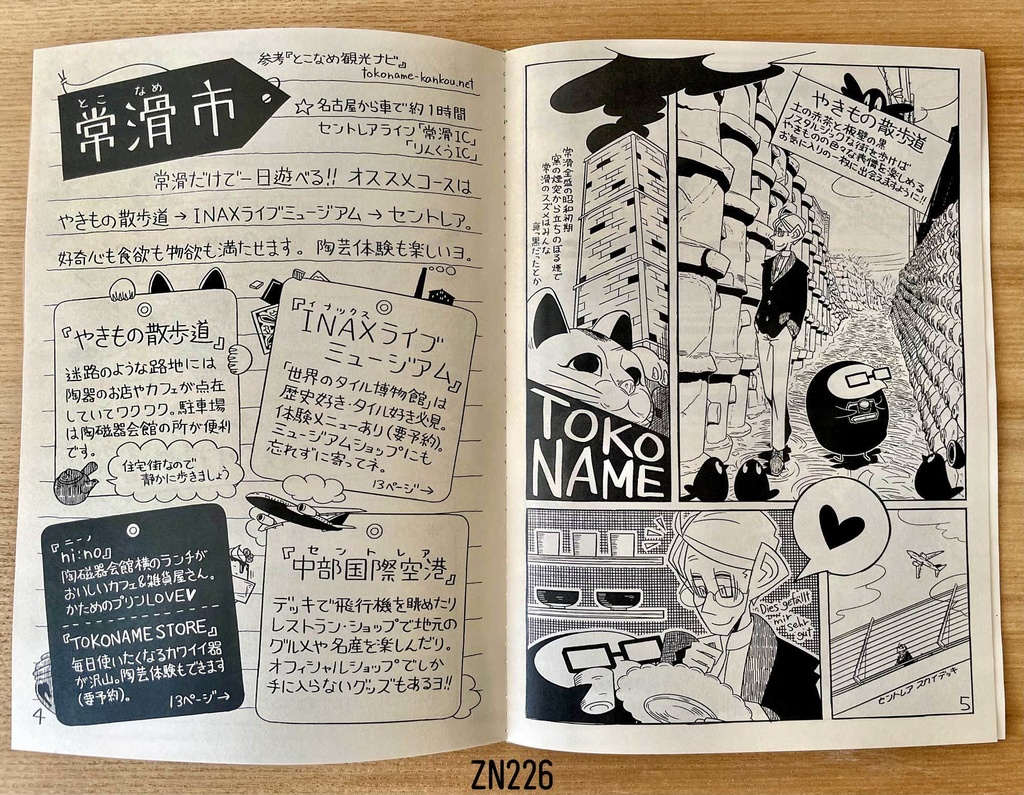 参考『とこなめ観光ナビ』
tokoname-kankou.net
とこ なめ
常滑市
☆名古屋から車で約1時間
セントレアライン「常滑IC」
「りんくうIC」
常滑だけで一日遊べる!! オススメコースは
やきもの散歩道→INAXライブミュージアム→セントレア。
好奇心も食欲も物欲も満たせます。陶芸体験も楽しいヨ。
『やきもの散歩道』
迷路のような路地には
陶器のお店やカフェが点在
していてワクワク。駐車場
は陶磁器会館の所が便利
です。
住宅街なので
静かに歩きましょう
イナックス
『INAXライブ
ミュージアム』
「世界のタイル博物館」は
歴史好き・タイル好き必見。
体験メニューあり(要予約)。
ミュージアムショップにも
忘れずに寄ってネ。
13ページ→
ニーノ
『ni:no』
陶磁器会館横のランチが
おいしいカフェ&雑貨屋さん。
かためのプリンLOVE♥
『TOKONAME STORE』
毎日使いたくなるカワイイ器
が沢山。陶芸体験もできます
(要予約)。
13ページ→
セントレア
『中部国際空港』
デッキで飛行機を眺めたり
レストラン・ショップで地元の
グルメや名産を楽しんだり。
オフィシャルショップでしか
手に入らないグッズもあるヨ!!
4
やきもの散歩道
土の赤茶と板壁の黒
ノスタルジックな街を歩けば
やきものの色々な表情を楽しめる
お気に入りの一物に出会えますように!!
常滑全盛の昭和初期
窯の煙突から立ちのぼる煙で
常滑のスズメはみんな
真っ黒だったとか
TOKO
NAME
Dies gefällt
mir
sehr
gut
セントレア スカイデッキ
5
ZN226